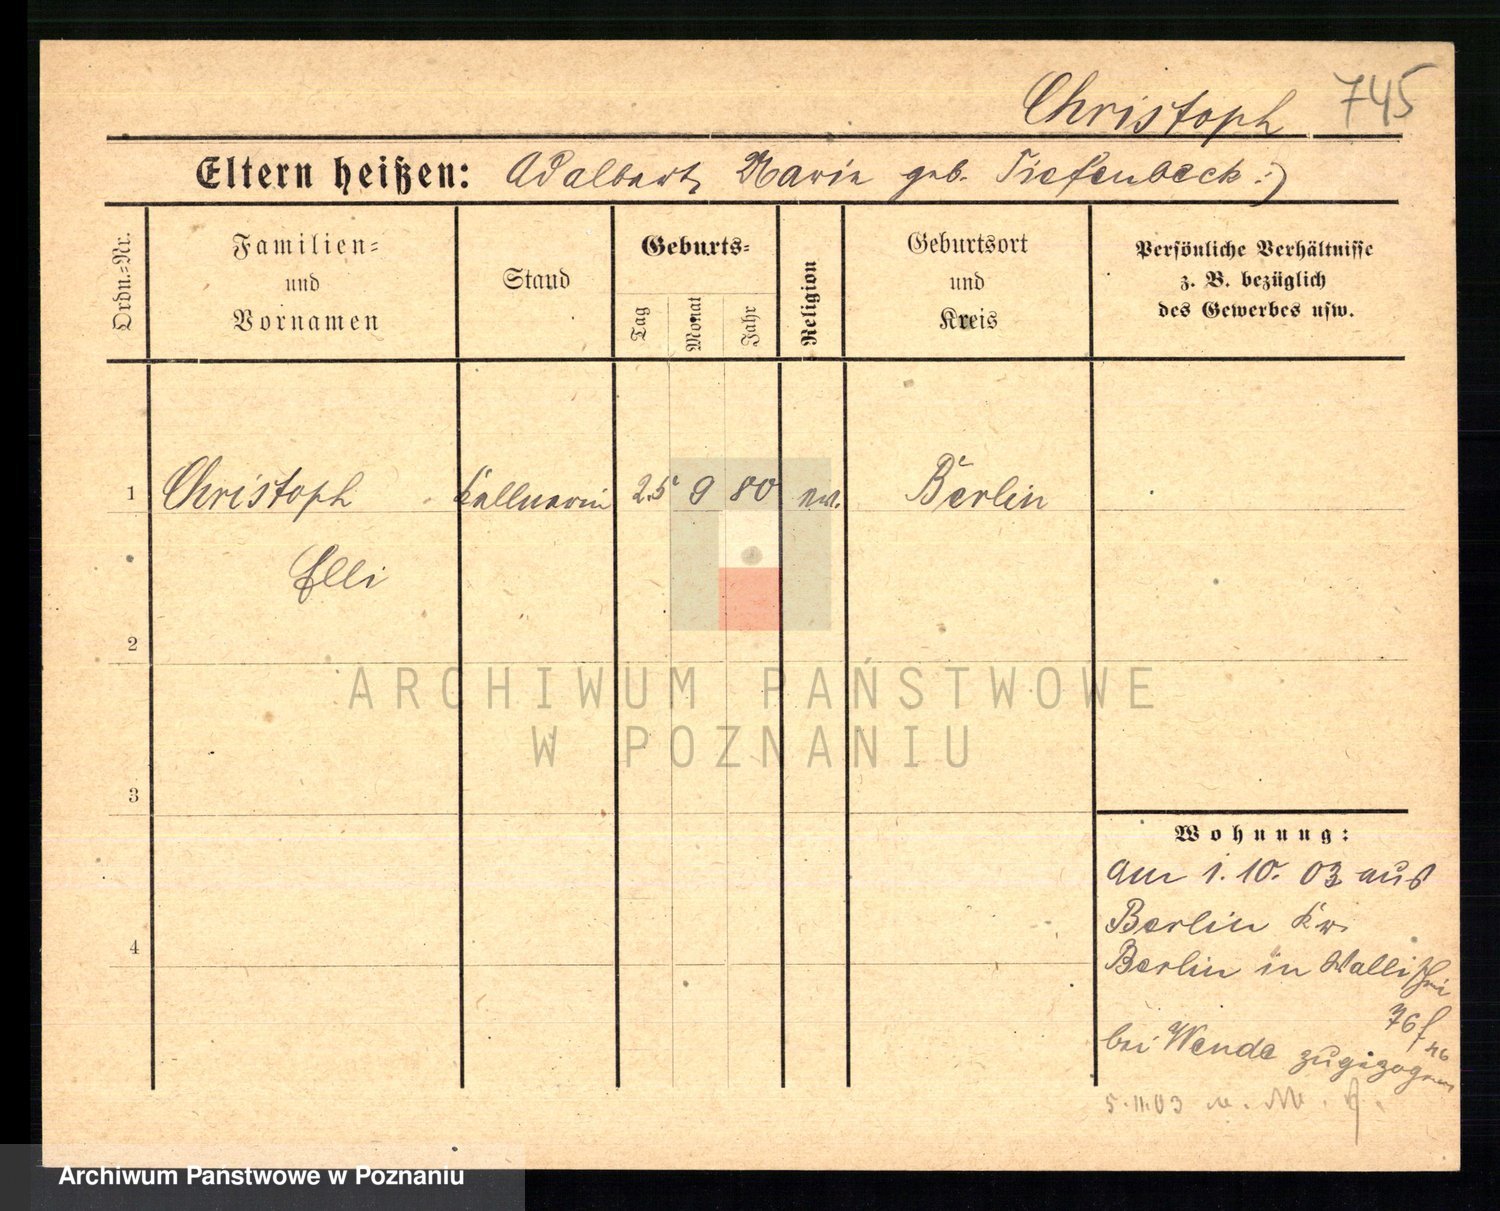 Christoph 745
Eltern heißen: Adalbert, Marie geb. Tiefenbeck :)
Ordn.=Nr.
Familien=
und
Vornamen
Stand
Geburts=
Tag
Monat
Jahr
Religion
Geburtsort
und
Kreis
Persönliche Verhältnisse
z. B. bezüglich
des Gewerbes usw.
1 Christoph Kellnerin 25 9 80 ev. Berlin
Elli
2
ARCHIWUM PAŃSTWOWE
W POZNANIU
3
Wohnung:
am 1. 10. 03 aus
Berlin Kr.
4
Berlin in Wallischei
76
bei Wenda zugezogen
5.11.03 n.
Archiwum Państwowe w Poznaniu